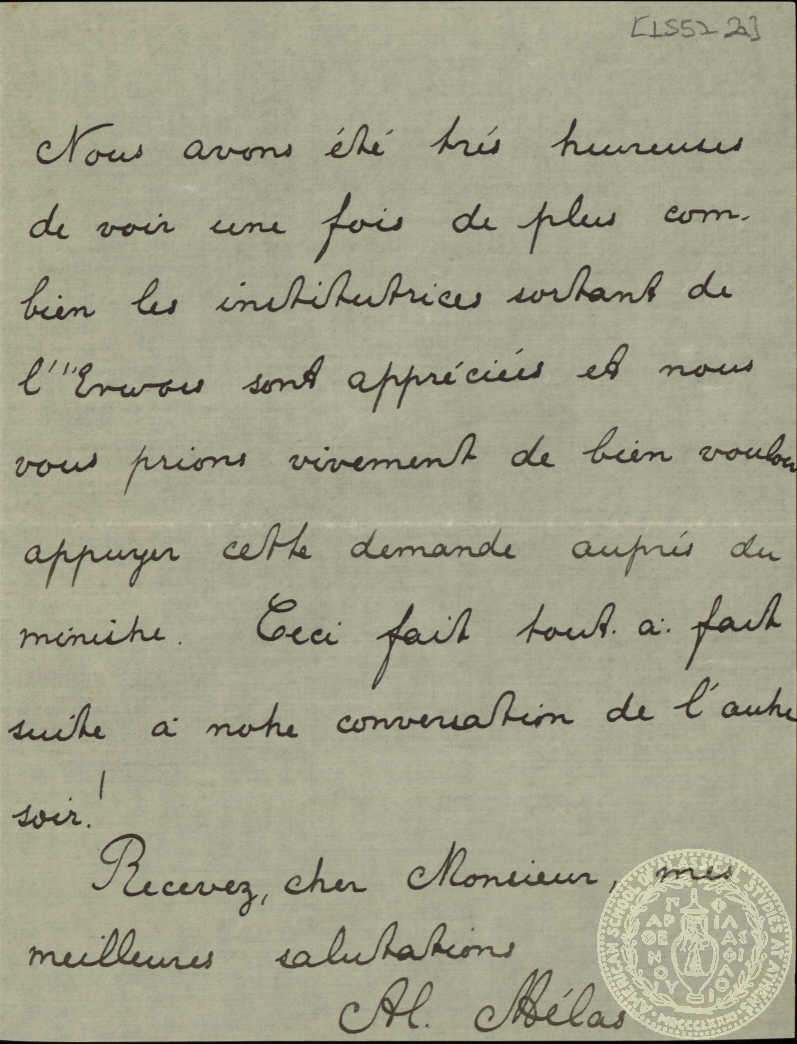 [1552 2a]
Nous avons été trés heureuses
de voir une fois de plus com-
bien les institutrices sortant de
l'"Ενωσις sont appréciées et nous
vous prions vivement de bien vouloir
appuyer cette demande auprés du
ministre. Ceci fait tout. à. fait
suite à notre conversation de l'autre
soir!
Recevez, cher Monsieur, mes
meilleures salutations
Al. Mélas
AMERICAN SCHOOL OF CLASSICAL STUDIES AT ATHENS
ΠΑΡΘΕΝΟΥ ΦΙΛΑΣ ΦΙΛΟΙ
MDCCCLXXXI